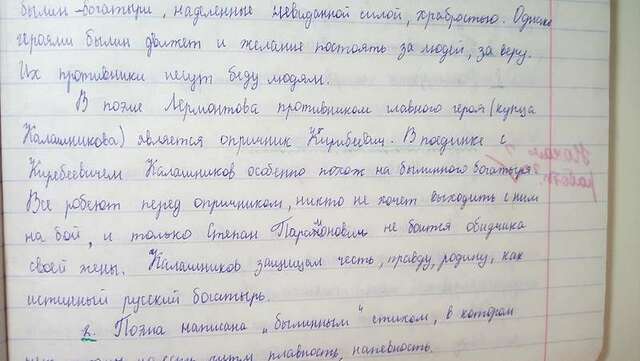 былин-богатыри, наделённые невиданной силой, храбростью.
героями былин движет и желание постоять за людей, за веру.
Их противники несут беду людям.
В поэме Лермонтова противником главного героя (купца
Калашникова) является опричник Кирибеевич. В поединке с
Киребеевичем Калашников особенно похож на былинного богатыря.
Все робеют перед опричником, никто не хочет выходить с ним
на бой, и только Степан Парамонович не боится обидчика
своей жены. Калашников защищал честь, правду, родину, как
истинный русский богатырь.
2. Поэма написана „былинным" стихом, в котором
плавность, напевность.